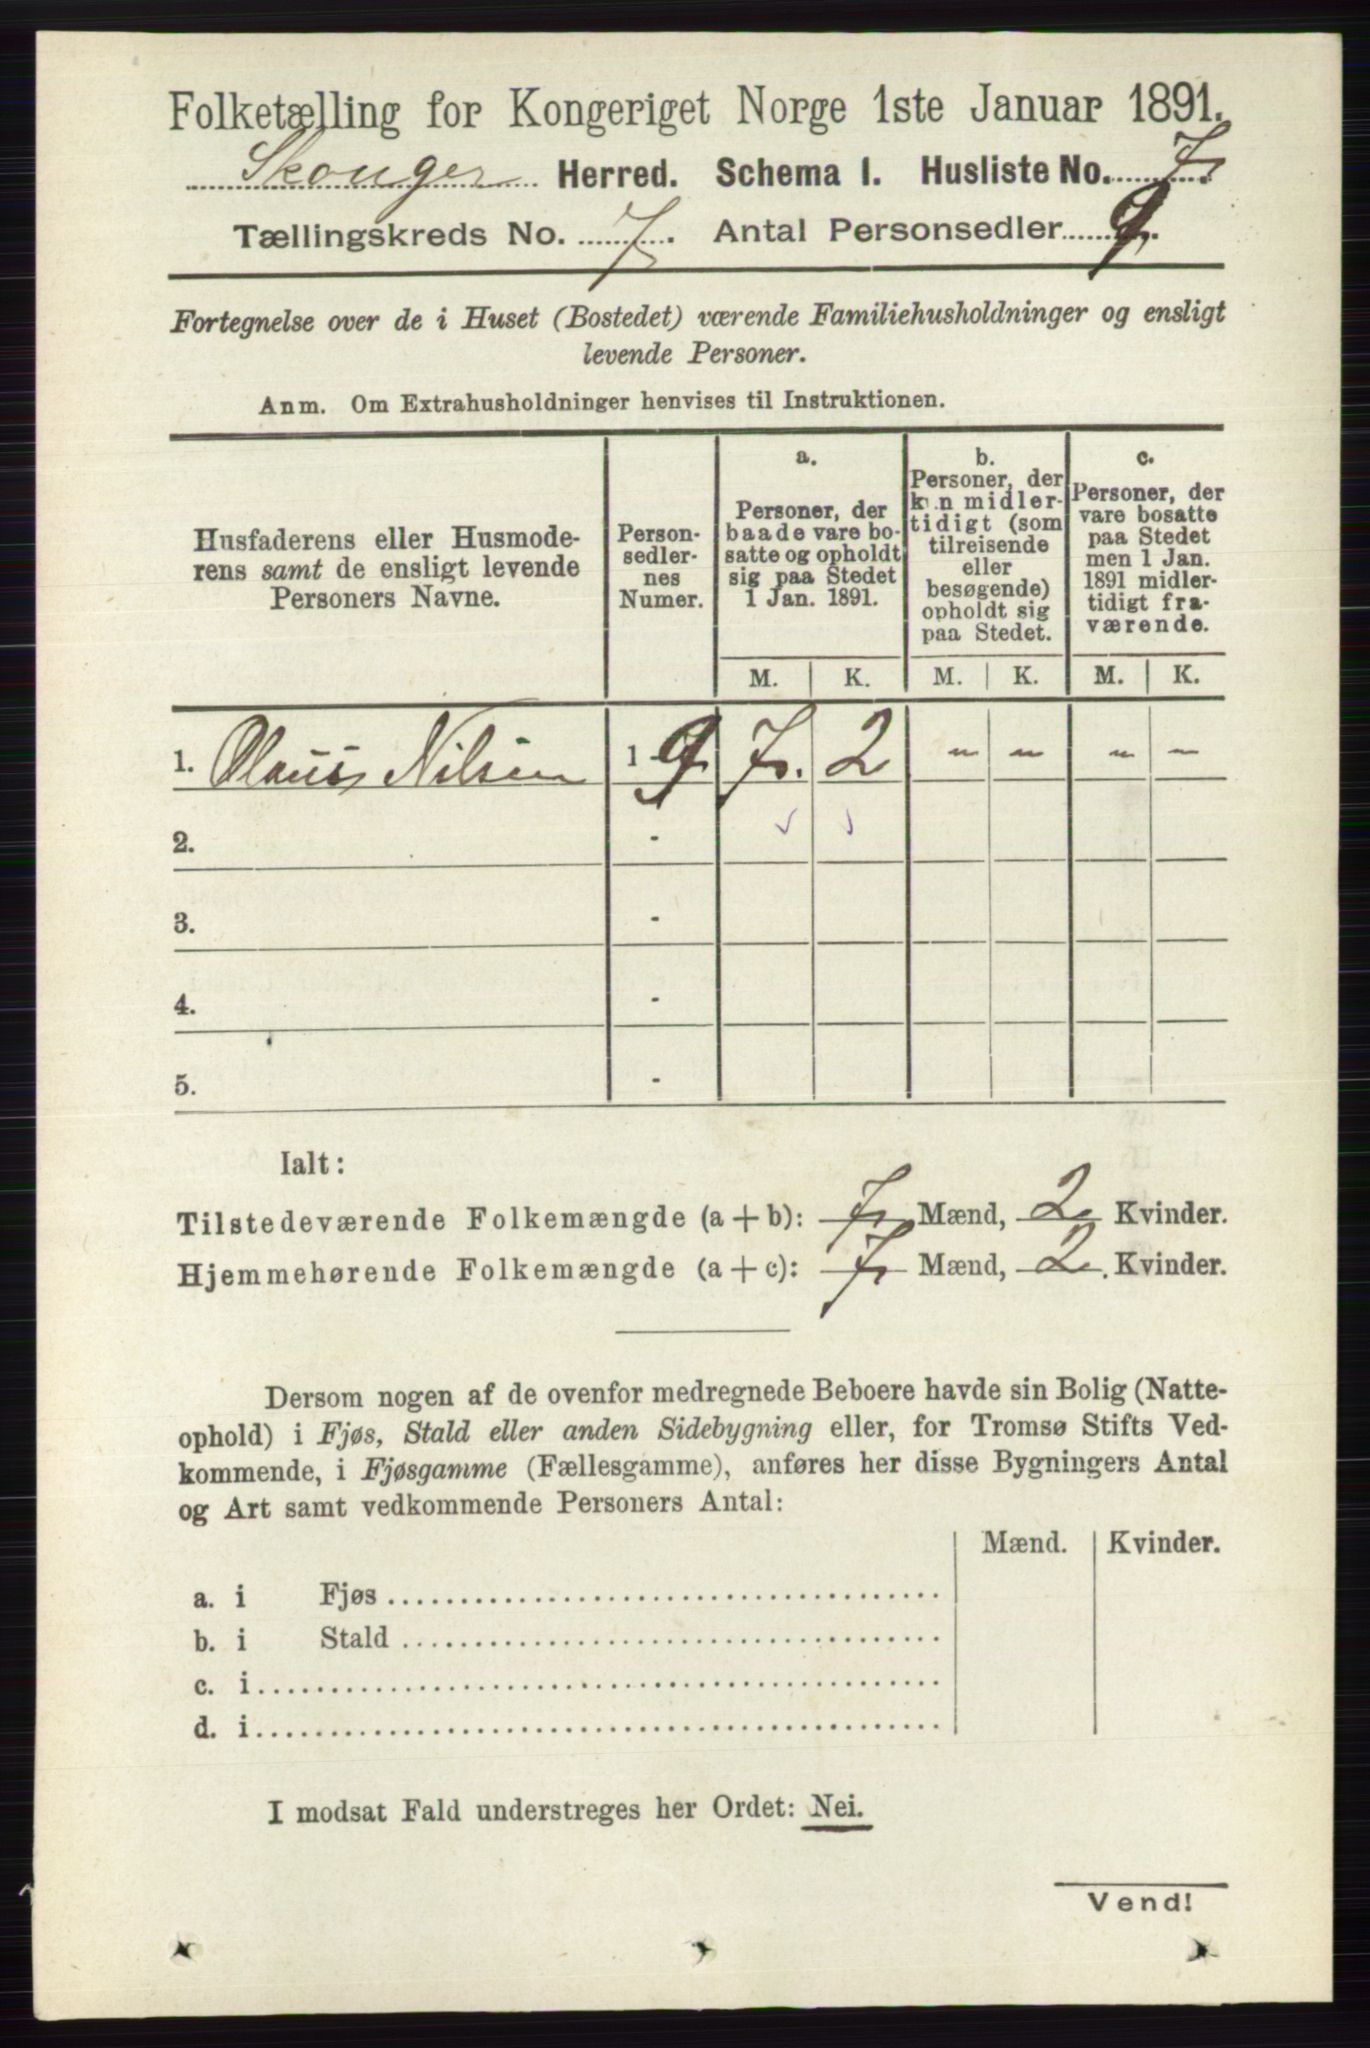 Folketælling for Kongeriget Norge 1ste Januar 1891.
Skouger Herred. Schema I. Husliste No. 7.
Tællingskreds No. 7. Antal Personsedler 9.
Fortegnelse over de i Huset (Bostedet) værende Familiehusholdninger og ensligt
levende Personer.
Anm. Om Extrahusholdninger henvises til Instruktionen.
Husfaderens eller Husmode-
rens samt de ensligt levende
Personers Navne.
Person-
sedler-
nes
Numer.
a.
Personer, der
baade vare bo-
satte og opholdt
sig paa Stedet
1 Jan. 1891.
b.
Personer, der
kun midler-
tidigt (som
tilreisende
eller
besøgende)
opholdt sig
paa Stedet.
c.
Personer, der
vare bosatte
paa Stedet
men 1 Jan.
1891 midler-
tidigt fra-
værende.
M. K. M. K. M. K.
1. Olaus Nilsen 1 - 9. 7. 2 – – – –
2. -
3. -
4. -
5. -
Ialt:
Tilstedeværende Folkemængde (a + b): 7 Mænd, 2 Kvinder.
Hjemmehørende Folkemængde (a + c): 7 Mænd, 2 Kvinder.
Dersom nogen af de ovenfor medregnede Beboere havde sin Bolig (Natte-
ophold) i Fjøs, Stald eller anden Sidebygning eller, for Tromsø Stifts Ved-
kommende, i Fjøsgamme (Fællesgamme), anføres her disse Bygningers Antal
og Art samt vedkommende Personers Antal:
Mænd. Kvinder.
a. i Fjøs
b. i Stald
c. i
d. i
I modsat Fald understreges her Ordet: Nei.
Vend!